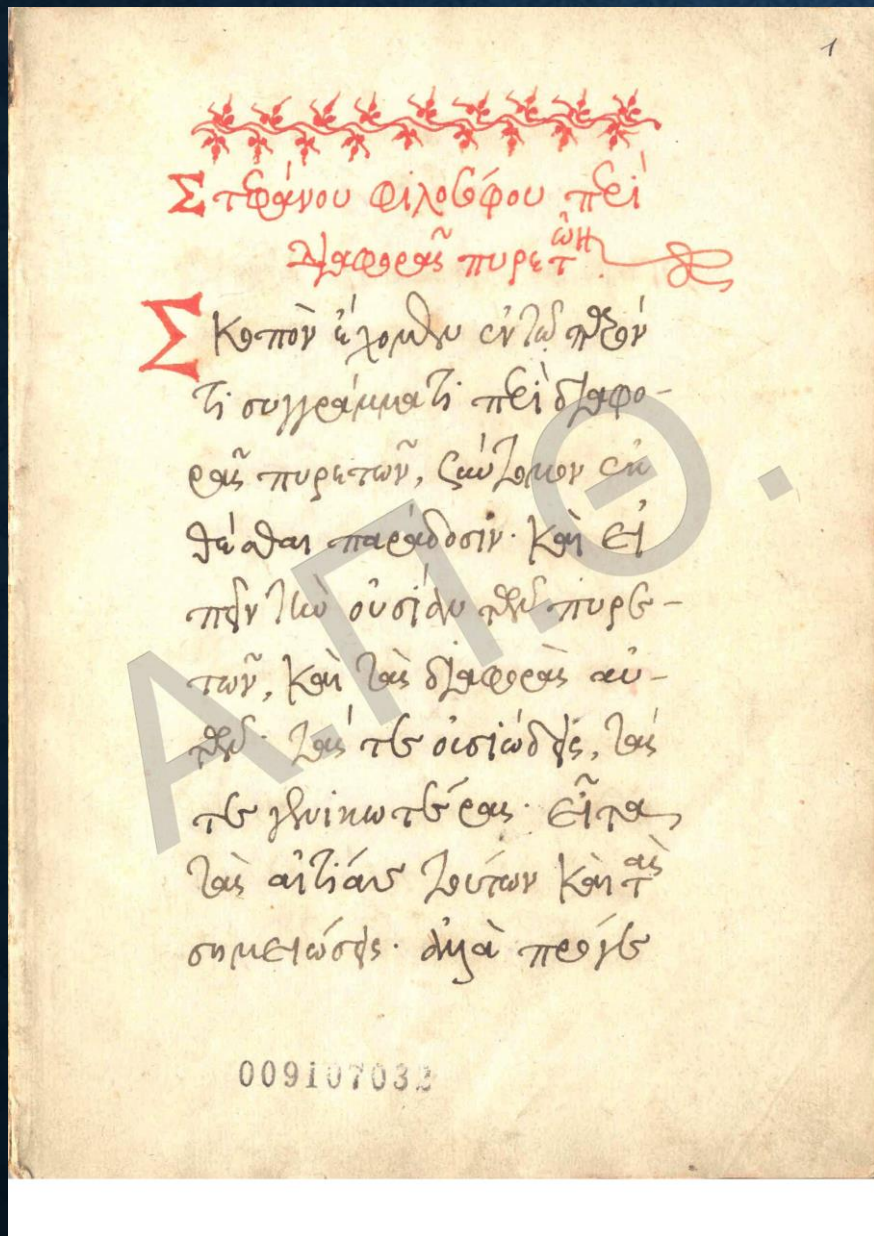 1
Στεφάνου φιλοσόφου περὶ
διαφορᾶς πυρετῶν
Σκοπὸν ἔχομεν ἐν τῷ παρόν
τι συγγράμματι περὶ διαφο-
ρᾶς πυρετῶν, σύντομον ἐκ
θέσθαι παράδοσιν· καὶ εἰ
πεῖν τὴν οὐσίαν τῶν πυρε-
τῶν, καὶ τὰς διαφορὰς αὐ-
τῶν· τάς τε οὐσιώδεις, τάς
τε γενικωτέρας· εἶτα
τὰς αἰτίας τούτων καὶ τὰς
σημειώσεις· ἀλλὰ πρό γε
009107032
Α.Π.Θ.